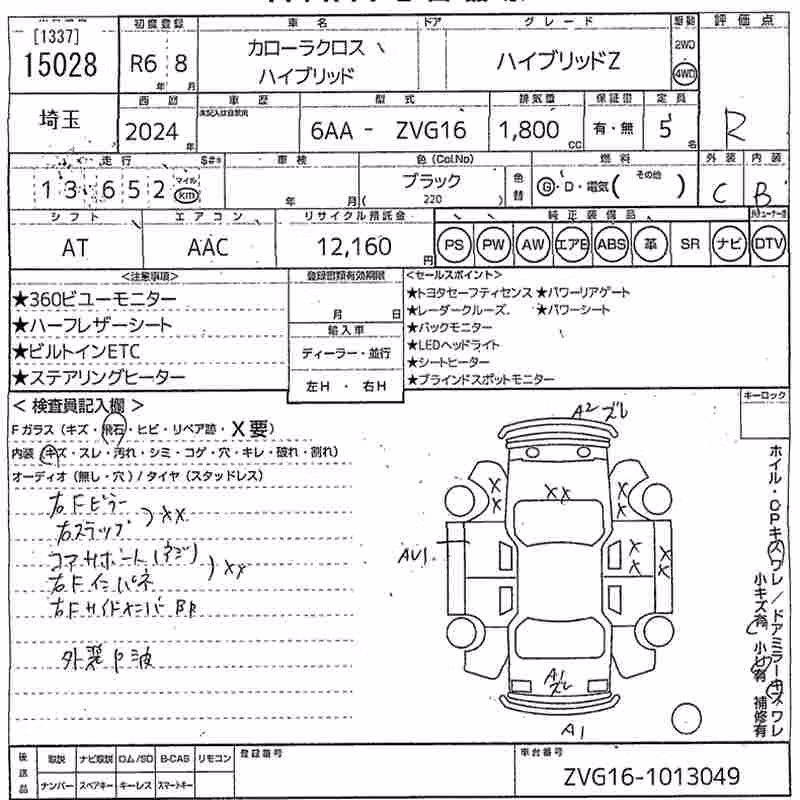 [1337]
15028
初度登録
R6 8
年 月
車名
カローラクロス
ハイブリッド
ドア
グレード
ハイブリッドZ
駆動
2WD
4WD
評価点
R
埼玉
西暦
2024 年
車歴
型式
6AA - ZVG16
排気量
1,800 cc
保証書
有・無
定員
5 名
走行
13,652 マイル km
車検
年 月
色(Col.No)
ブラック
( 220 )
色替
燃料
G・D・電気( その他 )
外装
C
内装
B
シフト
AT
エアコン
AAC
リサイクル預託金
12,160 円
純正装備品
PS PW AW エアB ABS 革 SR ナビ DTV
<注意事項>
★360ビューモニター
★ハーフレザーシート
★ビルトインETC
★ステアリングヒーター
登録書類有効期限
月 日
輸入車
ディーラー・並行
左H ・ 右H
<セールスポイント>
★トヨタセーフティセンス ★パワーリアゲート
★レーダークルーズ. ★パワーシート
★バックモニター
★LEDヘッドライト
★シートヒーター
★ブラインドスポットモニター
キーロック
< 検査員記入欄 >
Fガラス(キズ・飛石・ヒビ・リペア跡・X要)
内装(キズ・スレ・汚れ・シミ・コゲ・穴・キレ・破れ・割れ)
オーディオ(無し・穴)/タイヤ(スタッドレス)
右Fピラー
右ステップ ) XX
コアサポート(ネジ)
右Fインパネ ) XX
右Fサイドメンバー BP
外装 P 波
A2 ズレ
XX
X
X
X
X
AU1
X
X
X
X
A1
ズレ
A1
ホイル・CPキズワレ/ドアミラーキズワレ
小キズ有 小凹有 補修有
後送品
取説 ナビ取説 ロム/SD B-CAS リモコン
ナンバー スペアキー キーレス スマートキー
登録番号
車台番号
ZVG16-1013049